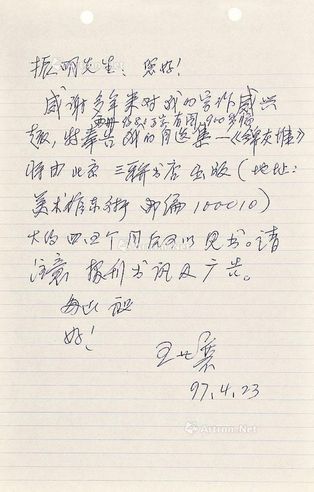 振明先生：您好！
感谢多年来对我的写作感兴
两册 约80万言 有图400多幅
趣，特奉告我的自选集—《锦灰堆》
将由北京三联书店出版（地址：
美术馆东街 邮编100010）
大约四、五个月后可以见书。请
注意报刊书讯及广告。
专此 祝
好！
王世襄
97.4.23
Artron.Net